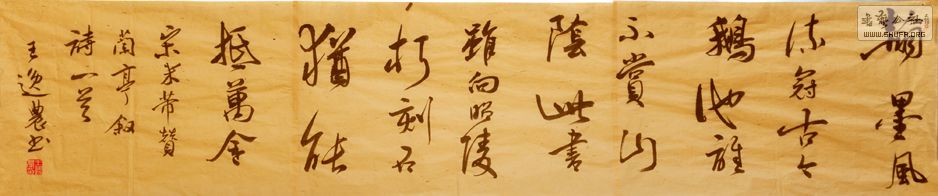 翰墨風
流冠古今
鵝池誰
不賞山
陰此書
雖向昭陵
朽刻石
猶能
抵萬金
宋米芾贊
蘭亭叙
詩一首
王逸農书
WWW.SHUFA.ORG